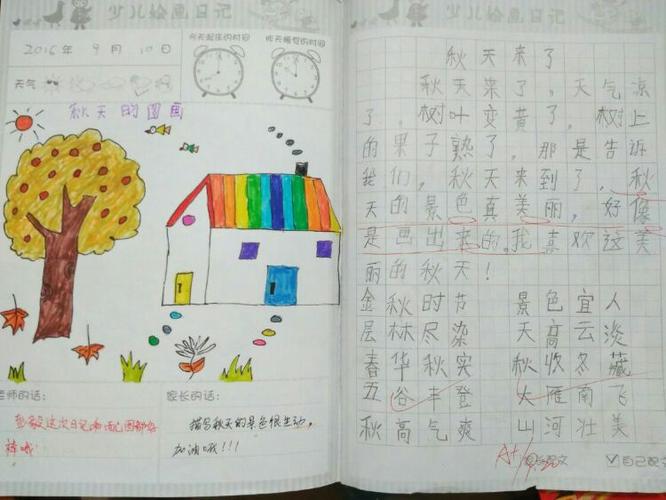 少儿绘画日记
2016年 9月 10日
今天起床的时间
昨天睡觉的时间
天气
秋天的图画
老师的话:
这次日记和配图都好
棒哦
家长的话:
描写秋天的景色很生动,
加油哦!!!
秋天来了
秋天来了,天气凉
了,树叶变黄了,树上
的果子熟了,那是告诉
我们,秋天来到了,秋
天的景色真美丽,好像
是画出来的。我喜欢这美
丽的秋天!
金秋时节 景色宜人
层林尽染 天高云淡
春华秋实 秋收冬藏
五谷丰登 大雁南飞
秋高气爽 山河壮美
A+
自己配文